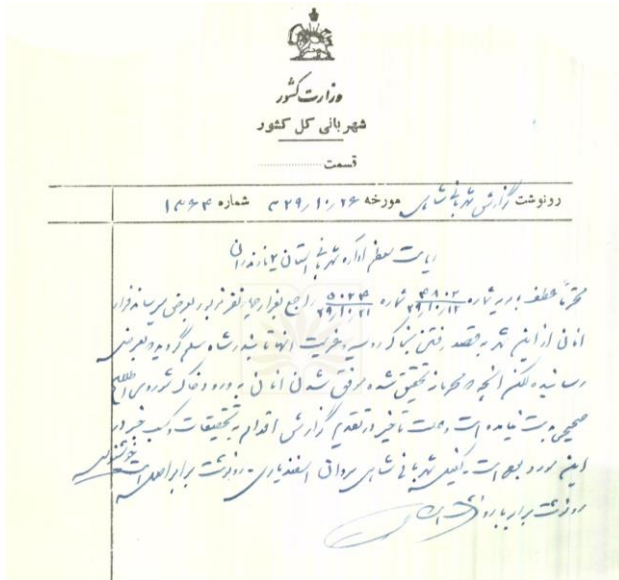 وزارت کشور
شهربانی کل کشور
قسمت
رونوشت گزارش شهربانی شاهی مورخه ۲۹/۱۰/۲۶ شماره ۱۳۶۴
ریاست معظم اداره شهربانی استان ۲ مازندران
محترماً عطف بدو شماره ۴۸۰۲ ۲۹/۱۰/۱۲ شماره ۵۰۲۴ ۲۹/۱۰/۲۱ راجع بفرار چهار نفر مزبور بعرض میرساند فرار
آنان از این شهر بقصد رفتن بخاک روسیه و عزیمت آنها تا بندرشاه مسلم گردیده و بعرض
رسانیده لکن آنچه محرمانه تحقیق شده موفق شدن آنان به ورود خاک شوروی اطلاع
صحیحی بدست نیامده است و علت تأخیر در تقدیم گزارش اقدام به تحقیقات و کسب خبر در
این مورد بوده است. کفیل شهربانی شاهی اسفندیاری رونوشت برابر اصل است
رونوشت برابر با رونوشت است